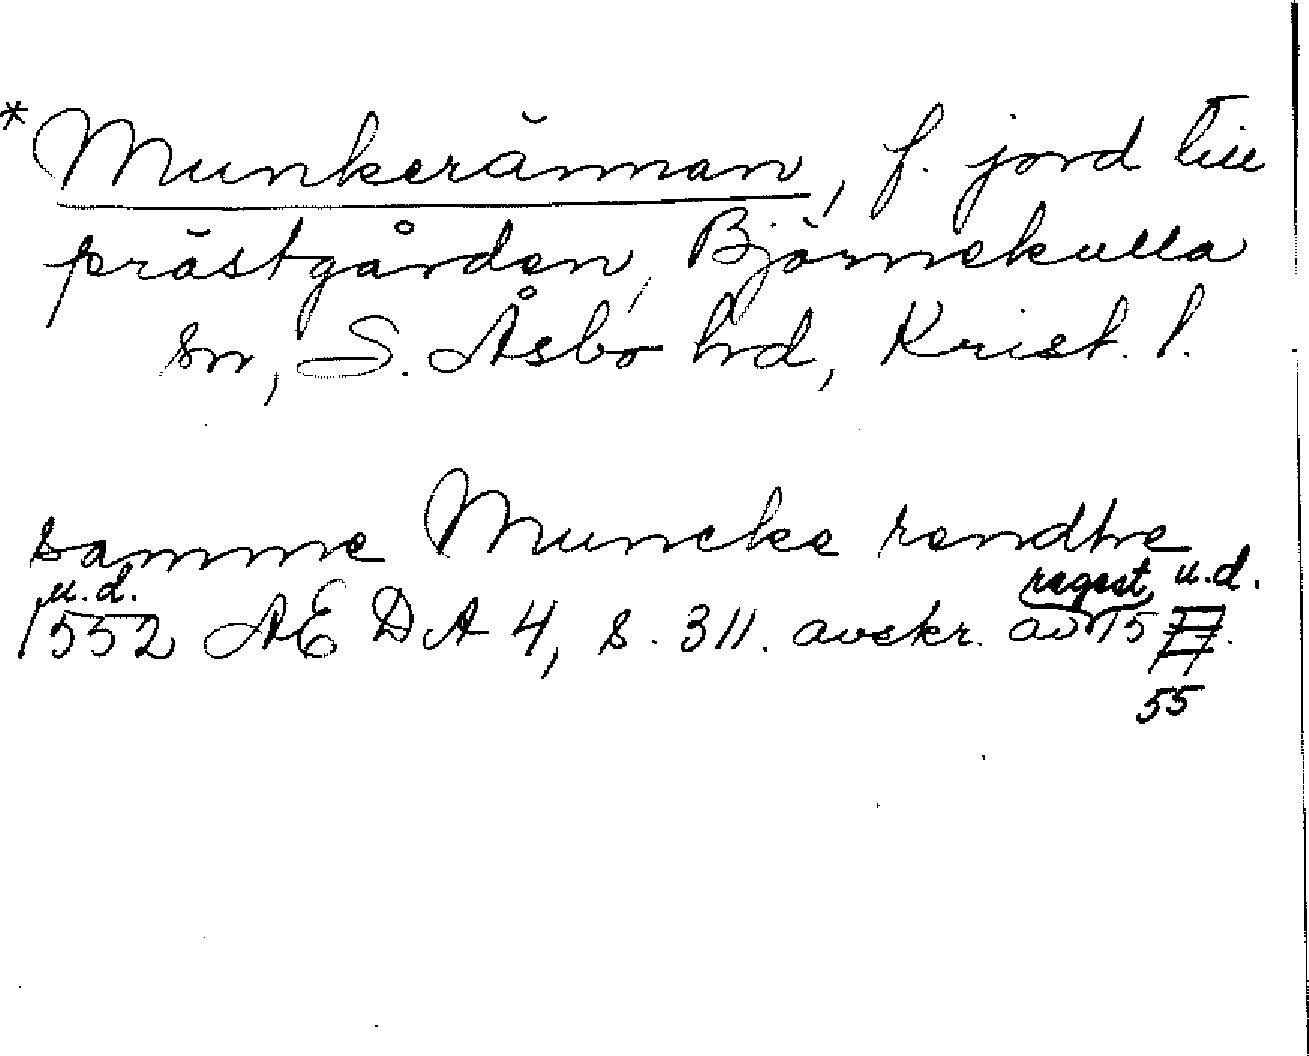 *Munkerännan, f. jord till
prästgården, Björnekulla
sn, S. Åsbo hd, Krist. l.
samme Muncke rendhe
u.d. regest u.d.
1552 AEDA 4, s. 311. avskr. av 15
55